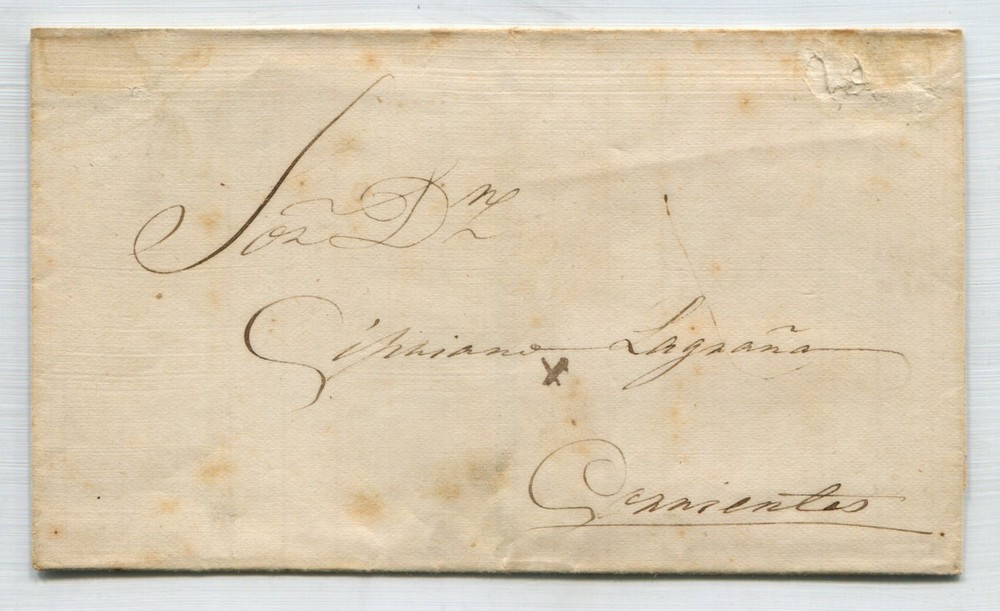 Señor Dn
Cipriano Lagraña
Corrientes